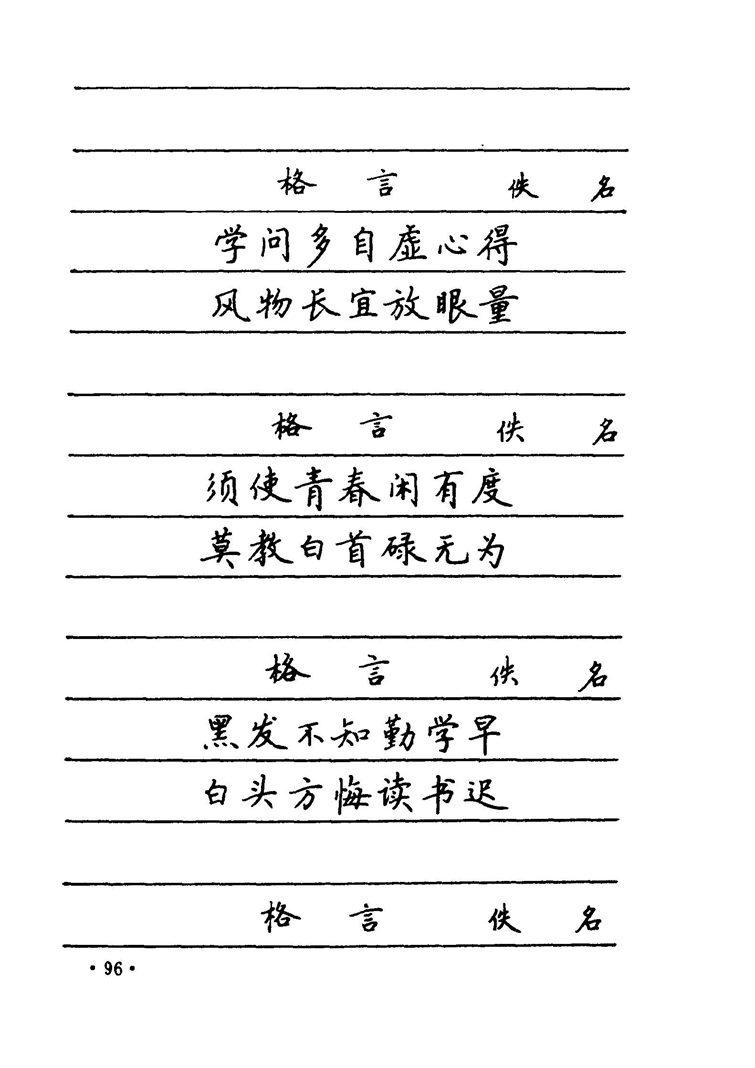 格言 佚名
学问多自虚心得
风物长宜放眼量
格言 佚名
须使青春闲有度
莫教白首碌无为
格言 佚名
黑发不知勤学早
白头方悔读书迟
格言 佚名
·96·